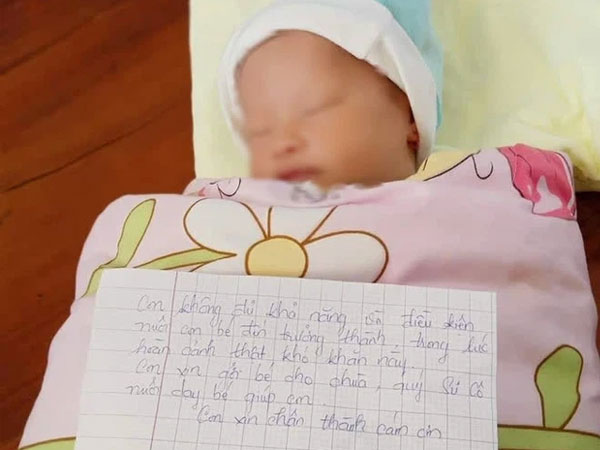 Con không đủ khả năng và điều kiện
nuôi con bé đến trưởng thành, trong lúc
hoàn cảnh thật khó khăn này,
Con xin gởi bé cho chùa, quý Sư Cô
nuôi dạy bé giúp con.
Con xin chân thành cám ơn